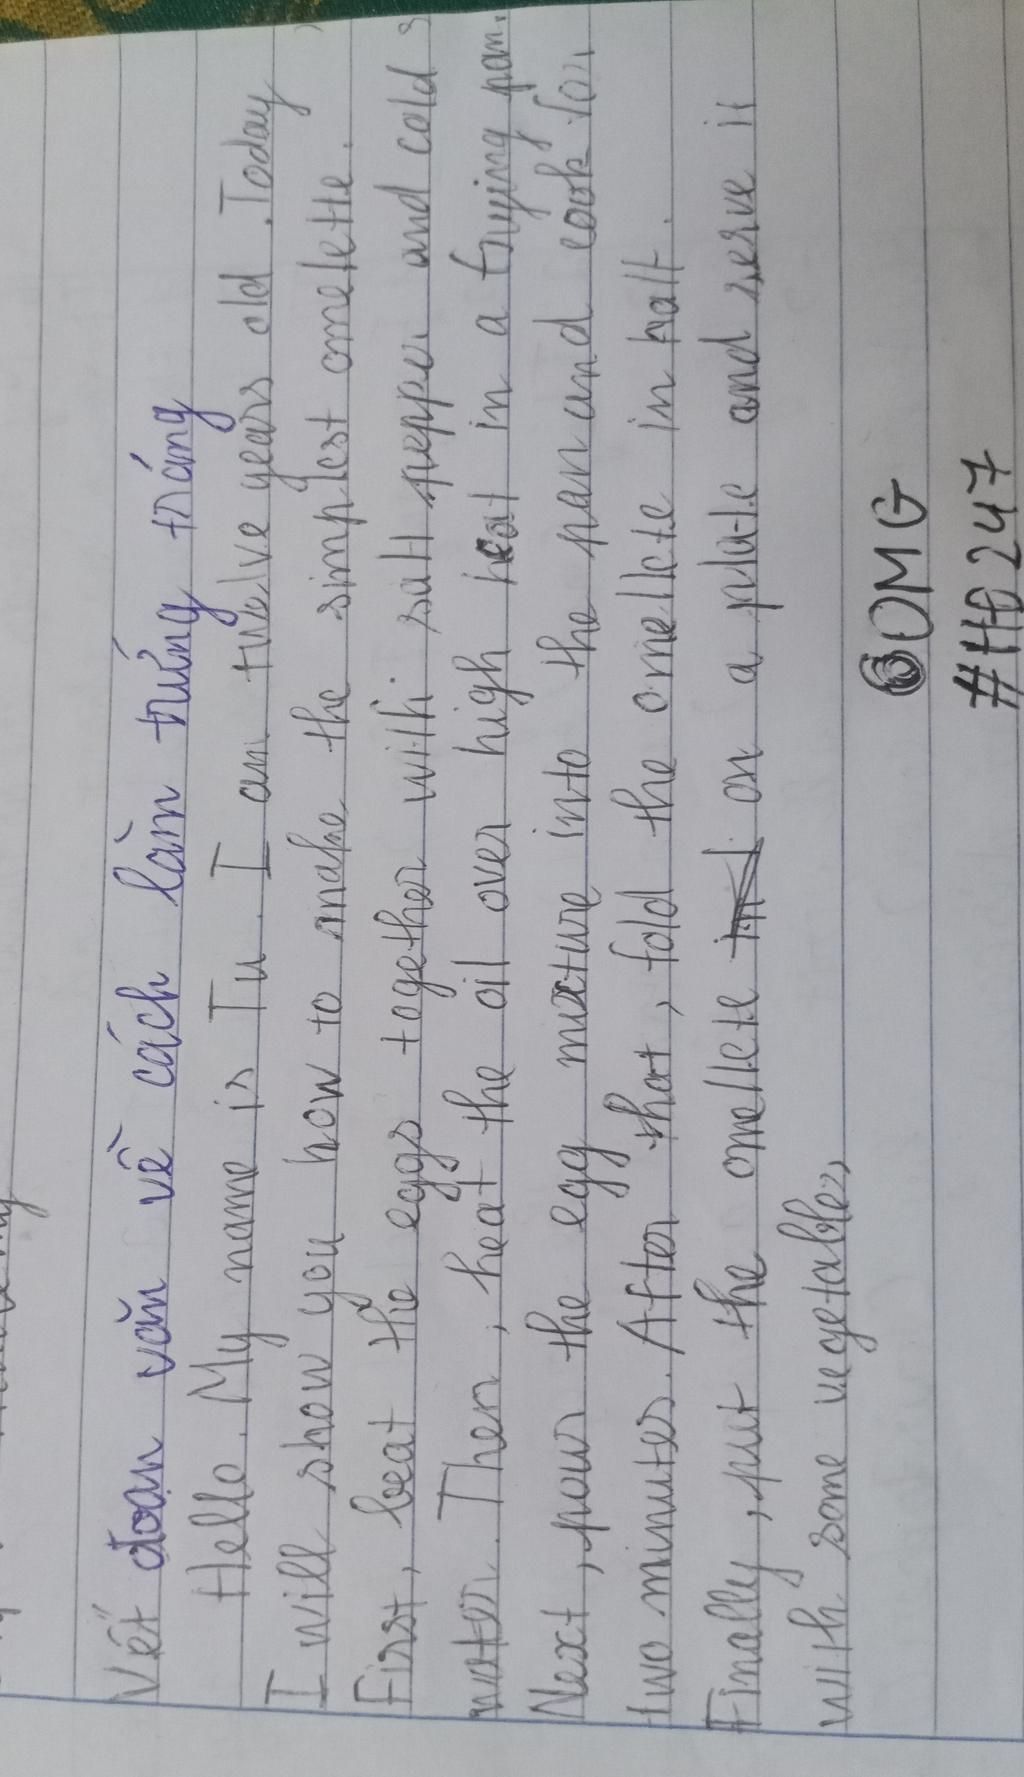 Vết đoạn văn về cách làm trứng tráng
Hello. My name is Tu. I am twelve years old. Today,
I will show you how to make the simplest omelette.
First, beat the eggs together with salt pepper and cold
water. Then, heat the oil over high heat in a frying pan.
Next, pour the egg mixture into the pan and cook for
two minutes. After that, fold the omellete in half.
Finally, put the omellete on a plate and serve it
with some vegetables,
OMG
#HD247